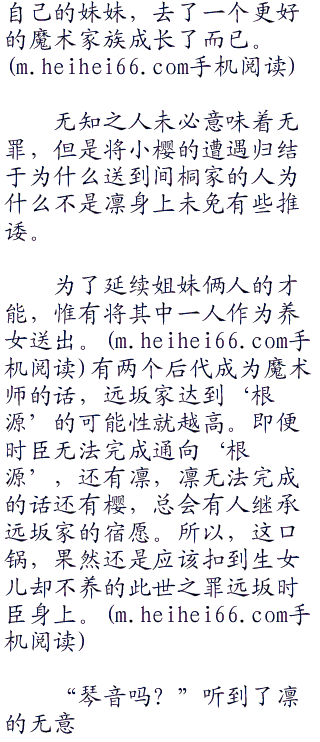 自己的妹妹，去了一个更好
的魔术家族成长了而已。
(m.heihei66.com手机阅读)
无知之人未必意味着无
罪，但是将小樱的遭遇归结
于为什么送到间桐家的人为
什么不是凛身上未免有些推
诿。
为了延续姐妹俩人的才
能，惟有将其中一人作为养
女送出。(m.heihei66.com手
机阅读)有两个后代成为魔术
师的话，远坂家达到‘根
源’的可能性就越高。即便
时臣无法完成通向‘根
源’，还有凛，凛无法完成
的话还有樱，总会有人继承
远坂家的宿愿。所以，这口
锅，果然还是应该扣到生女
儿却不养的此世之罪远坂时
臣身上。(m.heihei66.com手
机阅读)
“琴音吗？”听到了凛
的无意